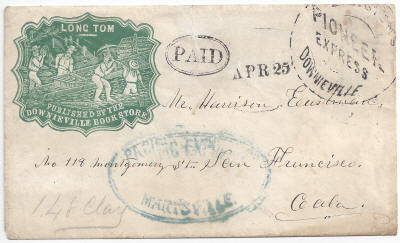 LONG TOM
PUBLISHED BY THE
DOWNIEVILLE BOOKSTORE
PAID
APR 25
PIONEER
EXPRESS
DOWNIEVILLE
Mr. Harrison Eastman,
No 118 Montgomery St. San Francisco.
Cala.
PACIFIC EXPRESS
MARYSVILLE
148 Clay